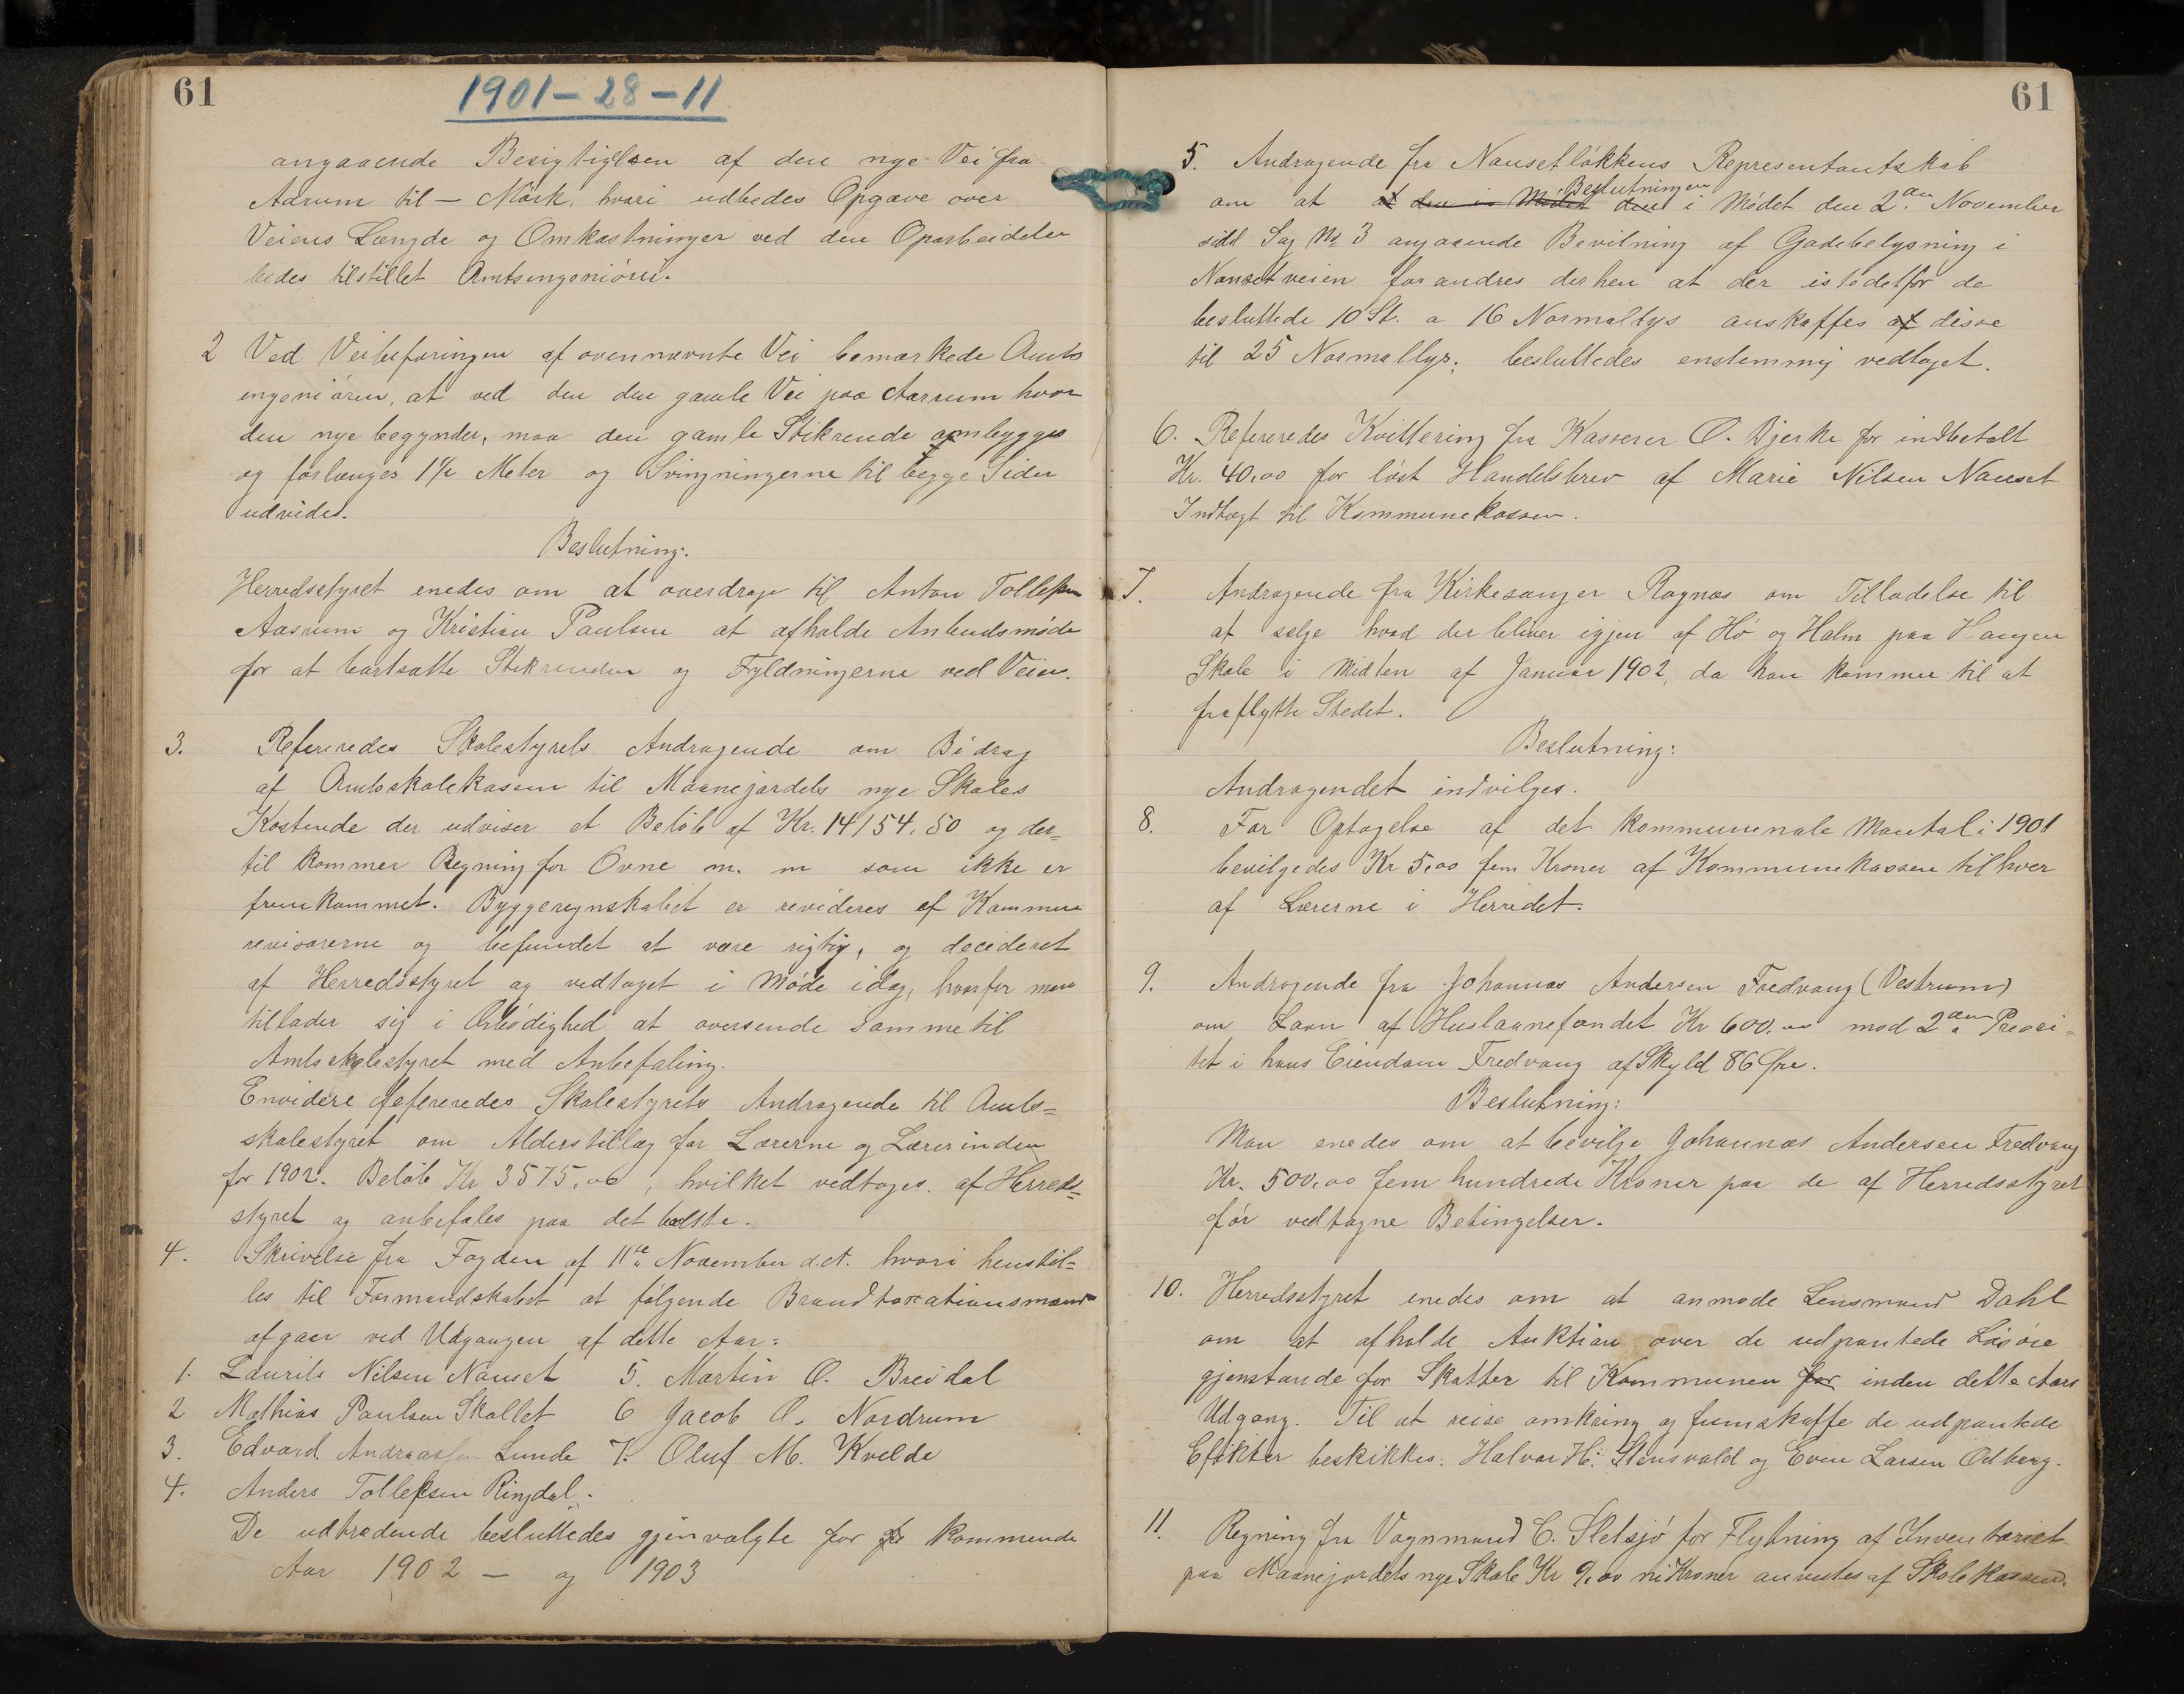 61
1901-28-11
angaaende Besigtigelsen af den nye Vei fra
Adrum til – Mörk, hvori udbedes Opgave over
Veiens Længde og Omkostninger ved den Oparbeidelse
bedes tilstillet Amtsingeniören.
2 Ved Veibefaringen af ovennævnte Vei bemærkede Amts
ingeniören, at ved den den gamle Vei paa Aarrum hvor
den nye begynder, maa den gamle Stikrende ombygges
og forlænges 1½ Meter og Svingningerne til begge Sider
udvides.
Beslutning:
Herredsstyret enedes om at overdrage til Anton Tollefsen
Aasrum og Kristian Paulsen at afholde Anbudsmöde
for at bortsætte Stikrenden og Fyldningerne ved Veien.
3. Refereredes Skolestyrets Andragende om Bidrag
af Amtsskolekassen til Maanejordets nye Skoles
Kostende der udviser et Belöb af Kr. 14154,50 og der=
til kommer Regning for Ovne m. m som ikke er
fremkommet. Byggeregnskabet er revideres af Kommune
revisorerne og befundet at være rigtig, og decideret
af Herredsstyret og vedtaget i Möde idag, hvorfor man
tillader sig i Ærbödighed at oversende samme til
Amtsskolestyret med Anbefaling.
Envidere Refereredes Skolestyrets Andragende til Amts=
skolestyret om Alderstillæg for Lærerne og Lærerinden
for 1902. Belöb Kr 3575,00, hvilket vedtoges af Herreds=
styret og anbefales paa det bedste.
4. Skrivelse fra Fogden af 11te November d.A. hvori henstil=
les til Formandskabet at fölgende Brandtaxationsmænd
afgaar ved Udgangen af dette Aar:
1. Laurits Nilsen Nauset 5. Martin O. Breidal
2 Mathias Paulsen Skallet 6 Jacob A. Nordrum
3. Edvard Andreassen Lunde 7. Oluf M. Kvelde
4. Anders Tollefsen Ringdal.
De udtrædende besluttedes gjenvalgte for de kommende
Aar 1902 – og 1903
61
5. Andragende fra Nausetlökkens Representantskab
om at at den i Mödet Beslutningen den i Mödet den 2den November
sidst Sag No 3 angaaende Bevilning af Gadebelysning i
Nansetveien forandres derhen at der istedetfor de
besluttede 10 St. a 16 Normallys anskaffes af disse
til 25 Normallys; besluttedes enstemmig vedtaget.
6. Refereredes Kvittering fra Kasserer O. Bjerke for indbetalt
Kr. 40,00 for löst Handelsbrev af Marie Nilsen Nauset
Indtægt til Kommunekassen.
7. Andragende fra Kirkesanger Rognæs om Tilladelse til
at sælge hvad der bliver igjen af Hö og Halm paa Vangen
Skole i Midten af Januar 1902, da han kommer til at
fraflytte Stedet.
Beslutning:
Andragendet indvilges.
8. For Optagelse af det kommunenale Mantal i 1901
bevilgedes Kr 5,00 fem Kroner af Kommunekassen til hver
af Lærerne i Herredet.
9. Andragende fra Johannas Andersen Fredvang (Vestrum)
om Laan af Huslaanefondet Kr 600,00 mod 2den Priori=
tet i hans Eiendom Fredvang af Skyld 86 Öre.
Beslutning:
Man enedes om at bevilge Johannas Andersen Fredvang
Kr. 500,00 fem hundrede Kroner paa de af Herredsstyret
för vedtagne Betingelser.
10. Herredsstyret enedes om at anmode Lensmand Dahl
om at afholde Auktion over de udpantede Lösöre
gjenstande for Skatter til Kommunen for inden dette Aars
Udgang. Til at reise omkring og fremskaffe de udpantede
Efekter beskikkes: Halvor H. Stensvold og Even Larsen Odberg.
11. Regning fra Vognmand C. Sletsjö for Flytning af Inventariet
paa Maanejordets nye Skole Kr 9,00 ni Kroner anvistes af Skolekassen.